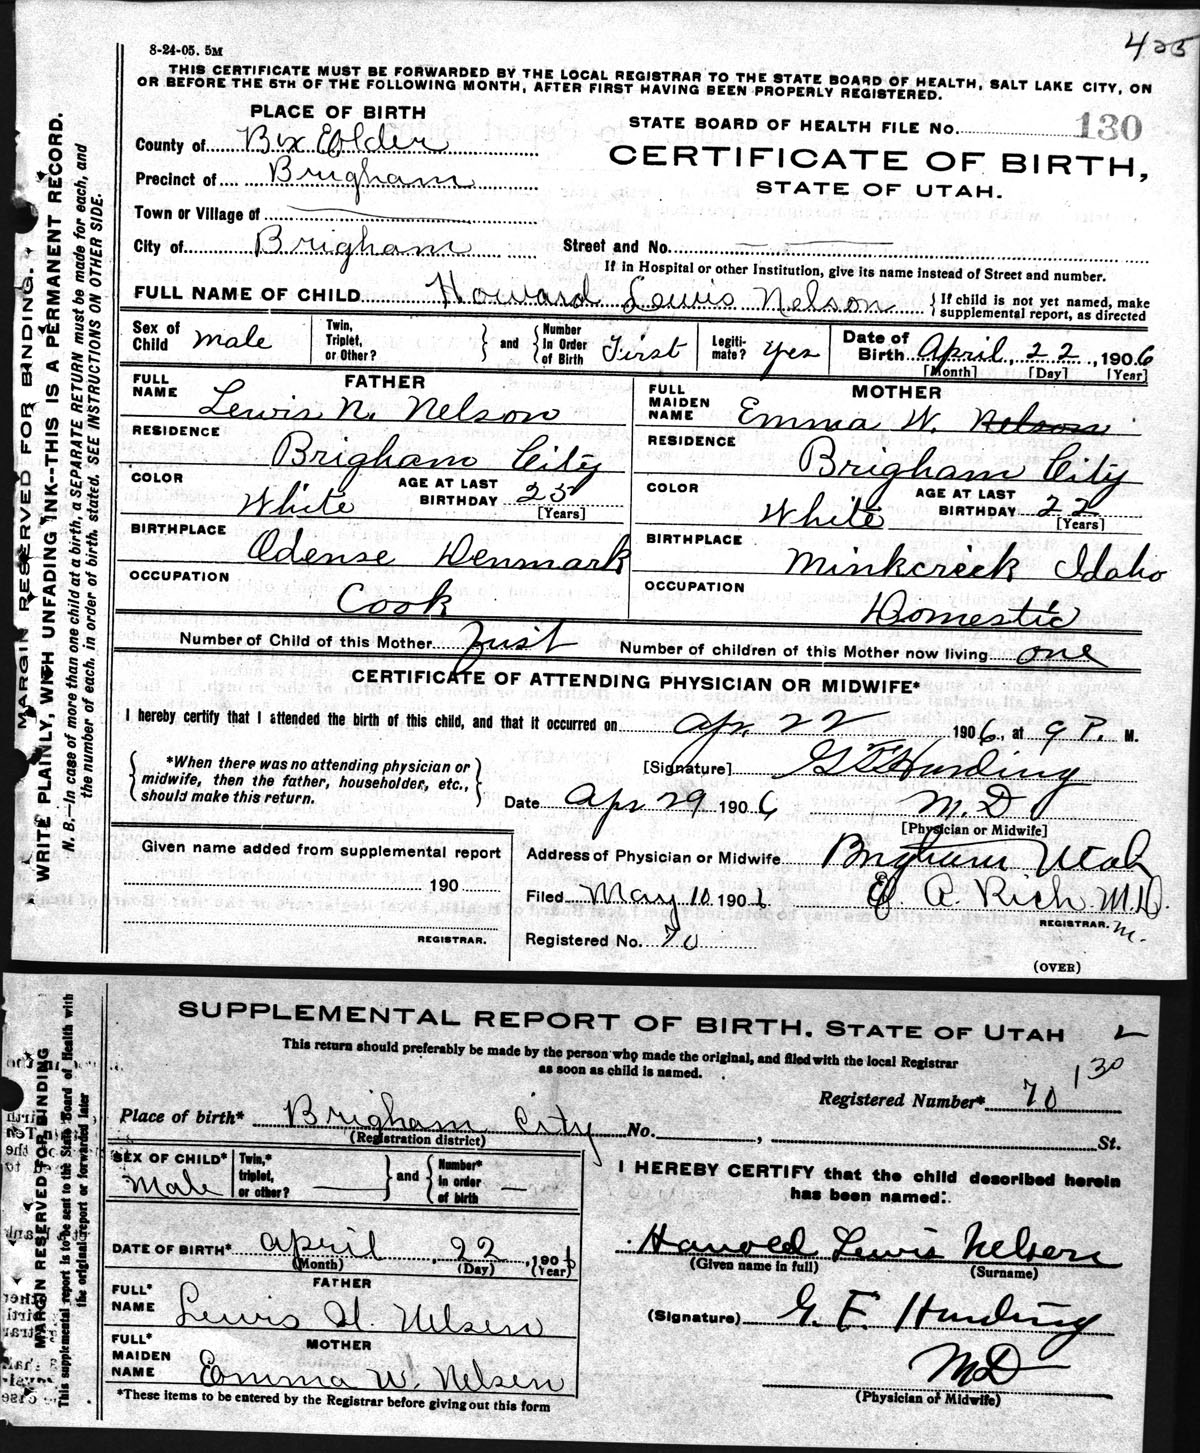 425
8-24-05. 5M
THIS CERTIFICATE MUST BE FORWARDED BY THE LOCAL REGISTRAR TO THE STATE BOARD OF HEALTH, SALT LAKE CITY, ON
OR BEFORE THE 5TH OF THE FOLLOWING MONTH, AFTER FIRST HAVING BEEN PROPERLY REGISTERED.
PLACE OF BIRTH
STATE BOARD OF HEALTH FILE No. 130
County of Box Elder
CERTIFICATE OF BIRTH,
Precinct of Brigham
STATE OF UTAH.
Town or Village of
City of Brigham Street and No.
If in Hospital or other Institution, give its name instead of Street and number.
FULL NAME OF CHILD Howard Lewis Nelson { If child is not yet named, make supplemental report, as directed
Sex of Child male Twin, Triplet, or Other? } and { Number In Order of Birth First Legiti-mate? Yes Date of Birth April, 22, 1906
[Month] [Day] [Year]
FATHER MOTHER
FULL NAME Lewis N. Nelson FULL MAIDEN NAME Emma W. Nelson
RESIDENCE Brigham City RESIDENCE Brigham City
COLOR White AGE AT LAST BIRTHDAY 25 [Years] COLOR White AGE AT LAST BIRTHDAY 22 [Years]
BIRTHPLACE Odense Denmark BIRTHPLACE Minkcreek Idaho
OCCUPATION Cook OCCUPATION Domestic
Number of Child of this Mother First Number of children of this Mother now living one
CERTIFICATE OF ATTENDING PHYSICIAN OR MIDWIFE*
I hereby certify that I attended the birth of this child, and that it occurred on Apr. 22 1906., at 9 P. M.
{ *When there was no attending physician or midwife, then the father, householder, etc., should make this return. }
[Signature] G F Harding
Date Apr 29 1906 M.D
[Physician or Midwife]
Given name added from supplemental report
190
REGISTRAR.
Address of Physician or Midwife Brigham Utah
Filed May 10 1906 E. A. Rich M.D.
REGISTRAR. m.
Registered No. 70
(OVER)
MARGIN RESERVED FOR BINDING.
WRITE PLAINLY, WITH UNFADING INK--THIS IS A PERMANENT RECORD.
N. B.—In case of more than one child at a birth, a SEPARATE RETURN must be made for each, and
the number of each, in order of birth, stated. SEE INSTRUCTIONS ON OTHER SIDE.
SUPPLEMENTAL REPORT OF BIRTH, STATE OF UTAH
This return should preferably be made by the person who made the original, and filed with the local Registrar
as soon as child is named.
130
Registered Number* 70
Place of birth* Brigham City No. , St.
(Registration district)
SEX OF CHILD* Male Twin,* triplet, or other? } and { Number* in order of birth
I HEREBY CERTIFY that the child described herein
has been named:
DATE OF BIRTH* April, 22, 1906
(Month) (Day) (Year)
Harold Lewis Nelsen
(Given name in full) (Surname)
FATHER
FULL* NAME Lewis N. Nelsen
(Signature) G. F. Harding
MOTHER
FULL* MAIDEN NAME Emma W. Nelsen
MD
(Physician or Midwife)
*These items to be entered by the Registrar before giving out this form
MARGIN RESERVED FOR BINDING
This supplemental report is to be sent to the State Board of Health with
the original report or forwarded later